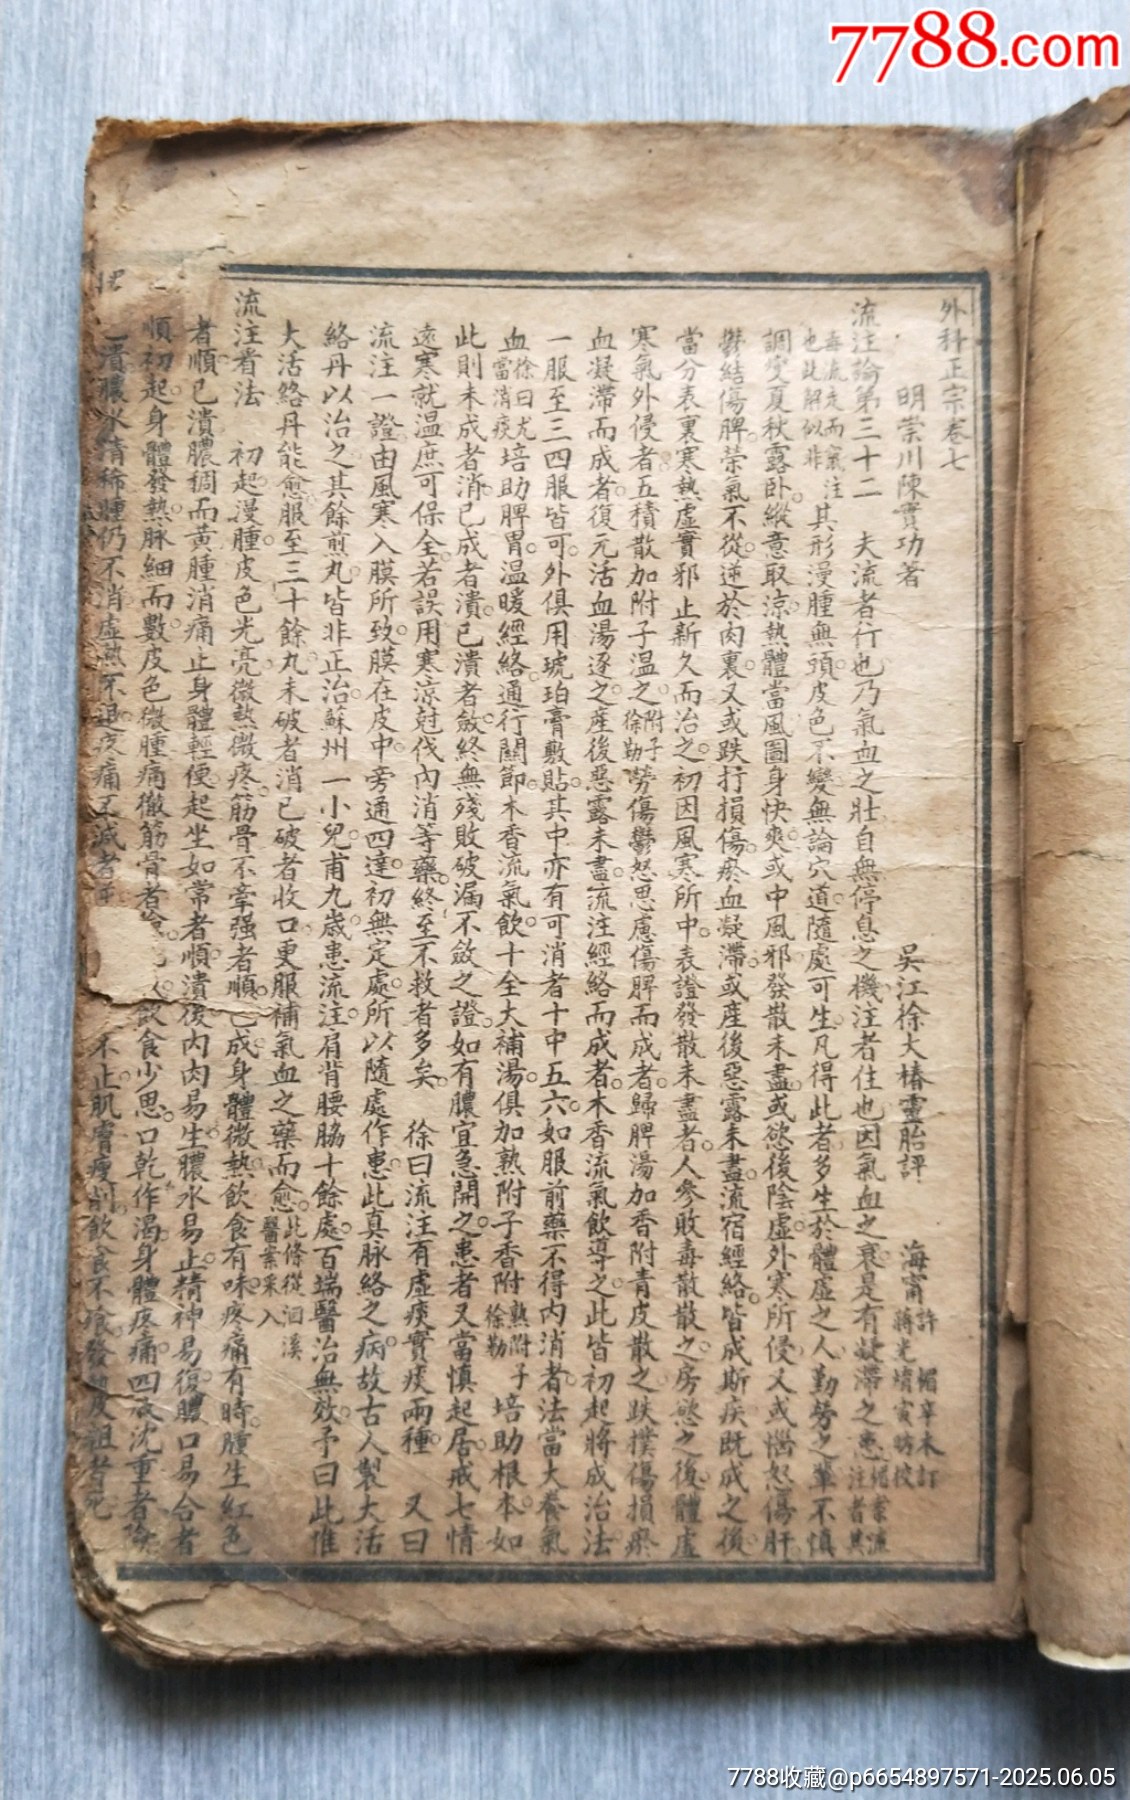 7788.com
外科正宗卷七
明崇川陳實功著 吳江徐大椿靈胎評 海甯許楣辛木訂 蔣光焴寅昉校
流注論第三十二 夫流者行也乃氣血之壯自無停息之機注者住也因氣血之衰是有凝滯之患楣案流注者其
毒流走而氣注也此解似非其形漫腫無頭皮色不變無論穴道隨處可生凡得此者多生於體虛之人勤勞之輩不慎
調變夏秋露臥縱意取涼熱體當風圖身快爽或中風邪發散未盡或慾後陰虛外寒所侵又或惱怒傷肝
鬱結傷脾榮氣不從逆於肉裏又或跌打損傷瘀血凝滯或產後惡露未盡流宿經絡皆成斯疾既成之後
當分表裏寒熱虛實邪正新久而治之初因風寒所中表證發散未盡者人參敗毒散散之房慾之後體虛
寒氣外侵者五積散加附子溫之附子徐勒勞傷鬱怒思慮傷脾而成者歸脾湯加香附青皮散之跌撲傷損瘀
血凝滯而成者復元活血湯逐之產後惡露未盡流注經絡而成者木香流氣飲導之此皆初起將成治法
一服至三四服皆可外俱用琥珀膏敷貼其中亦有可消者十中五六如服前藥不得內消者法當大養氣
血徐曰尤當消痰培助脾胃溫暖經絡通行關節木香流氣飲十全大補湯俱加熟附子香附熟附子徐勒培助根本如
此則未成者消已成者潰已潰者斂終無殘敗破漏不斂之證如有膿宜急開之患者又當慎起居戒七情
遠寒就溫庶可保全若誤用寒涼尅伐內消等藥終至不救者多矣 徐曰流注有虛痰實痰兩種 又曰
流注一證由風寒入膜所致膜在皮中旁通四達初無定處所以隨處作患此真脉絡之病故古人製大活
絡丹以治之其餘煎丸皆非正治蘇州一小兒甫九歲患流注肩背腰脇十餘處百端醫治無效予曰此惟
大活絡丹能愈服至三十餘丸未破者消已破者收口更服補氣血之藥而愈此條從洄溪醫案采入
流注看法 初起漫腫皮色光亮微熱微疼筋骨不牽强者順已成身體微熱飲食有味疼痛有時腫生紅色
者順已潰膿稠而黃腫消痛止身體輕便起坐如常者順潰後內肉易生膿水易止精神易復膿口易合者
順初起身體發熱脉細而數皮色微腫痛徹筋骨者飲食少思口乾作渴身體疼痛四肢沈重者險
潰膿水清稀腫仍不消虛熱不退疼痛不減者 不止肌膚瘦削飲食不飡發熱皮粗者死
7788收藏@p6654897571-2025.06.05